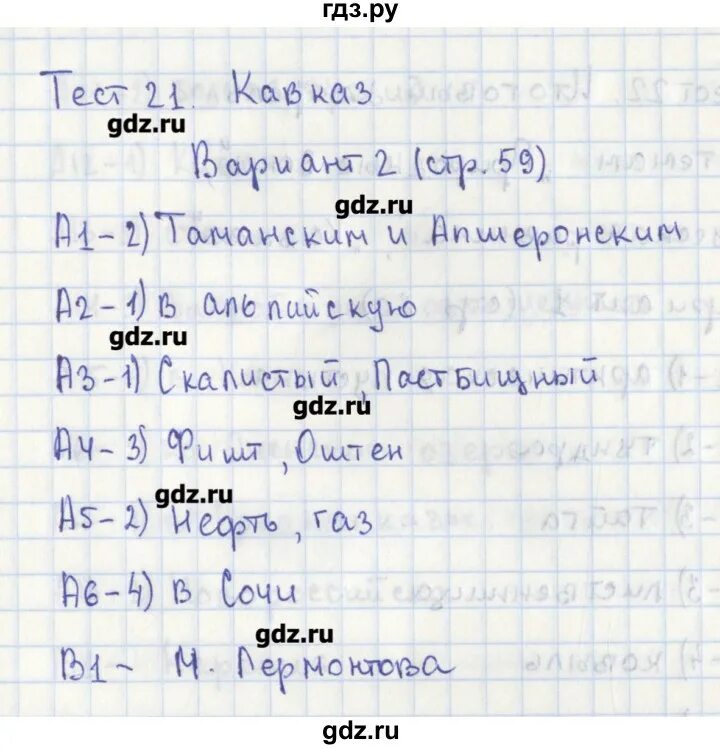 гдз.ру
Тест 21. Кавказ
gdz.ru
Вариант 2 (стр. 59)
gdz.ru
А1-2) Таманским и Апшеронским
А2-1) В альпийскую
gdz.ru
А3-1) Скалистый, Пастбищный
gdz.ru
А4-3) Фишт, Оштен
gdz.ru
А5-2) Нефть, газ
А6-4) В Сочи
gdz.ru
В1- М. Лермонтова
gdz.ru